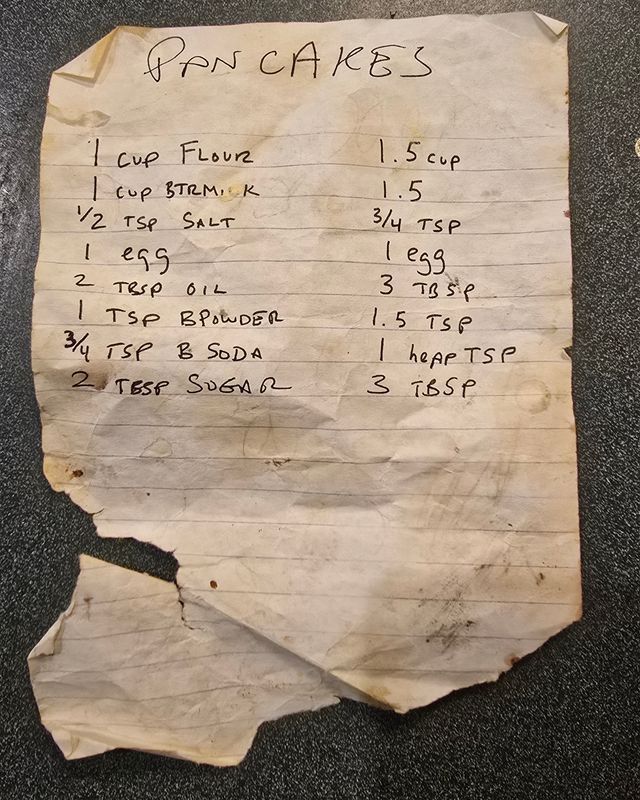 PANCAKES
1 CUP FLOUR 1.5 CUP
1 CUP BTRMILK 1.5
1/2 TSP SALT 3/4 TSP
1 egg 1 egg
2 TBSP OIL 3 TBSP
1 TSP BPOWDER 1.5 TSP
3/4 TSP B SODA 1 heap TSP
2 TBSP SUGAR 3 TBSP